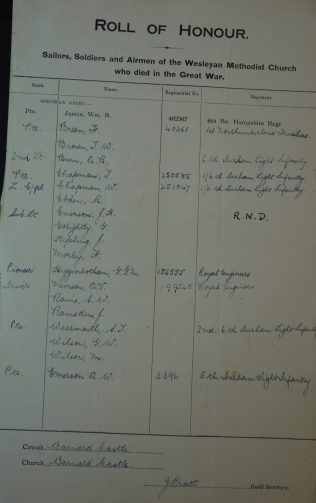 ROLL OF HONOUR.
Sailors, Soldiers and Airmen of the Wesleyan Methodist Church
who died in the Great War.
Rank. Name. Regimental No. Regiment.
SPECIMEN ENTRY—
Pte. James, Wm. R. 462367 6th Bn. Hampshire Regt.
Pte. Breen, J. 40261 1st Northumberland Fusiliers
Brown, J. W.
2nd Lt 6th Durham Light Infantry
Pte. Chapman, J. 280585 1/6th Durham Light Infantry
L. Cpl Chapman W. 251047 1/6th Durham Light Infantry
Sub. Lt. Emerson, J. R. R.N.D.
Golightly, G.
Kipling, J.
Morley, F.
Pioneer Higginbotham, G. G. W. 156555 Royal Engineers
Driver Peirson, A. V. 199540 Royal Engineers
Raine, C. W.
Ramsden, J.
Pte. Wearmouth, S. J. 2nd 6th Durham Light Infantry
Wilson, G. W.
Wilson, M.
Pte. Emerson A. W. 3396 5th Durham Light Infantry
Circuit Barnard Castle.
Church Barnard Castle.
J. Pratt Guild Secretary.